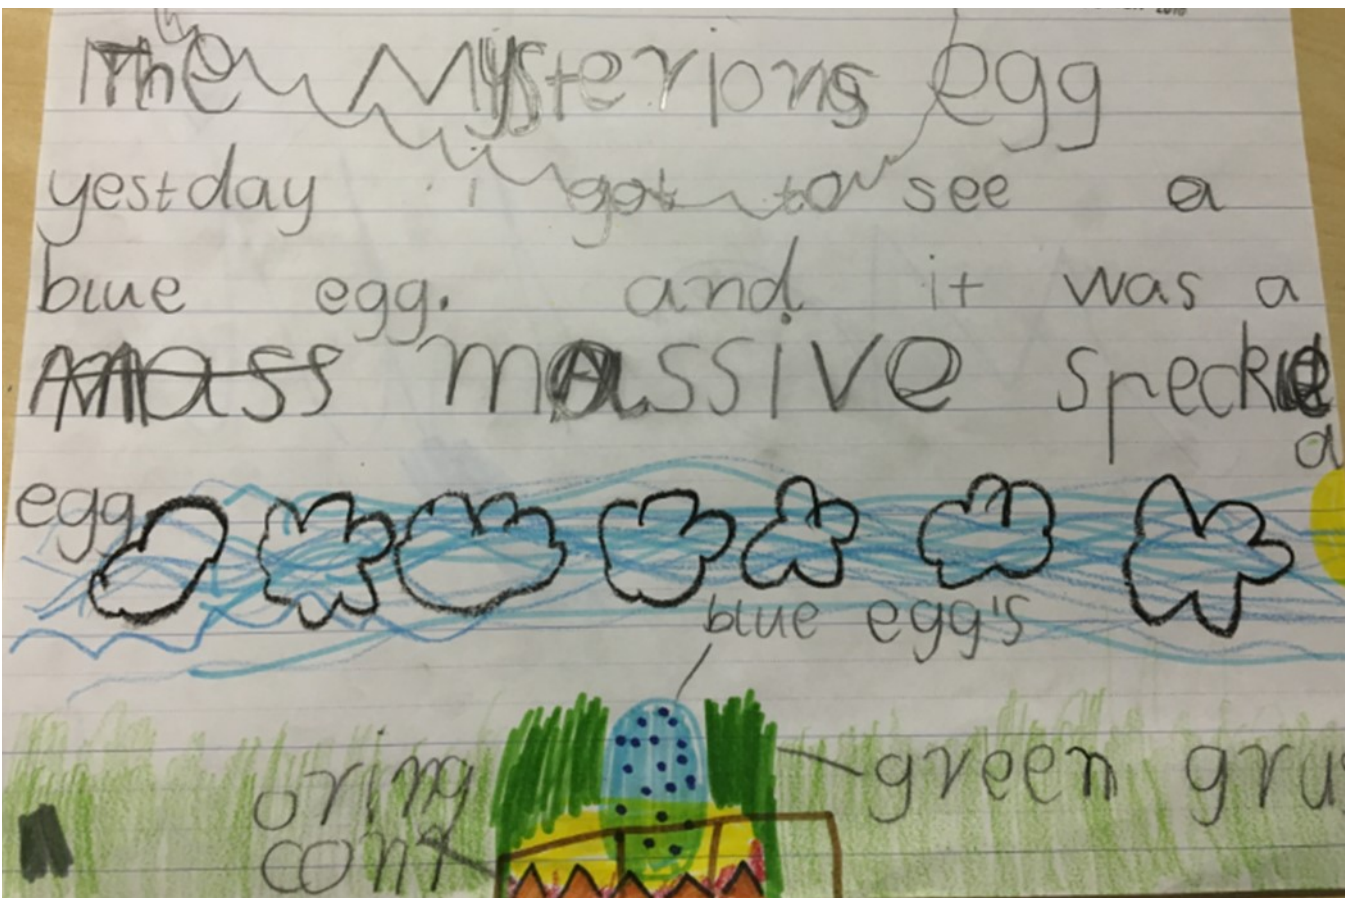 The Mysterions egg
yestday i got to see a
blue egg. and it was a
mass massive speckled
egg
blue egg's
oring
green grus
cont